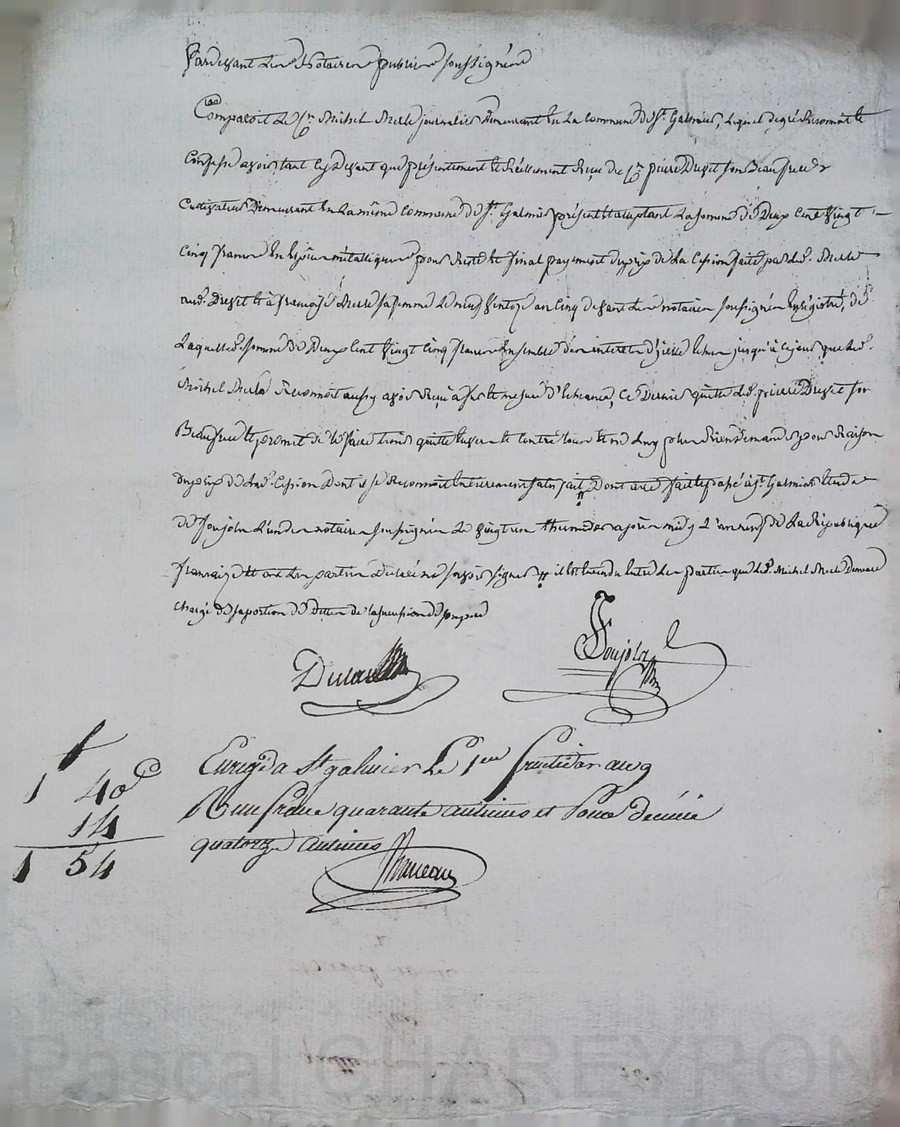 Pardevant Les Notaires publics soussignés
Comparoit Le Cn Michel Merle journalier Demeurant En La commune de St Galmier, Lequel de gré Reconnoit et
Confesse avoir tant cy Devant que présentement et Réellement Reçu du Cn pierre Duzit son Beaufrere
Cultivateur Demeurant En La même commune de St Galmier présent et acceptant La somme de Deux Cent vingt
Cinq francs En Espèces métalliques pour Reste et final payement du prix de La Cession faite par led. Merle
aud. Duzit et à françoise Merle sa femme Le neuf ventose an cinq devant Les notaires soussignés Enrégistré, de
Laquelle d. somme de Deux Cent vingt cinq francs Ensemble des interets d'jcelle Echus jusqu'à Ce jour que led.
Michel Merle Reconnoit aussy avoir Reçu à fur et mesure d'Echeance, Ce Dernier quitte led. pierre Duzit son
Beaufrere et promet de le faire tenir quitte Envers et contre tous et ne luy plus Rien Demander pour Raison
du prix de lad. Cession Dont il se Reconnoit Entierement satisfait Dont acte fait et passé à St Galmier Etude
de Soujolx L'un des notaires soussignés Le vingt un thermidor après midy L'an neuf de La République
française et ont Les parties Déclaré ne savoir signer # il Est Entendu Entre Les parties que led. Michel Merle Demeure
chargé de sa portion de Dettes de la succession de
Soujolx
Enrégé a St galmier Le 1er fructidor an 9
R un franc quarante centimes et pour decime
quatorze centimes
1f 40c
14
1 54
Pascal CHAREYRON